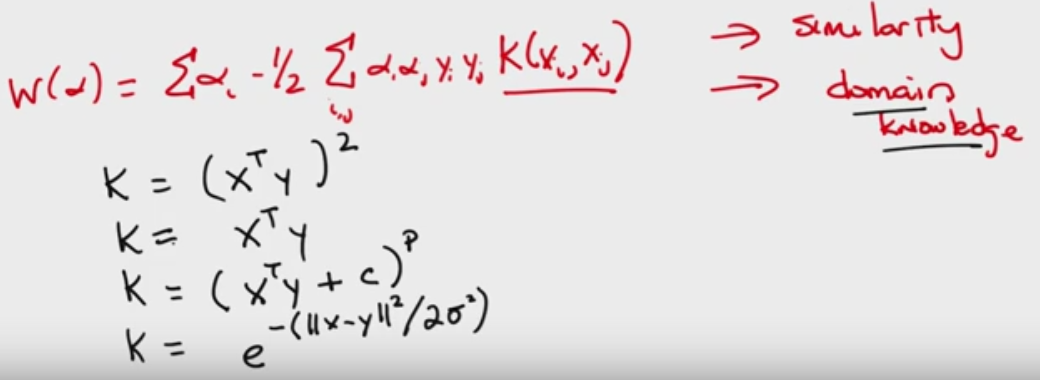 W(α) = Σαᵢ - 1/2 Σᵢ,ⱼ αᵢαⱼ yᵢ yⱼ K(xᵢ, xⱼ) → similarity
→ domain
knowledge
K = (xᵀy)²
K = xᵀy
K = (xᵀy + c)ᵖ
K = e^-(||x-y||²/2σ²)